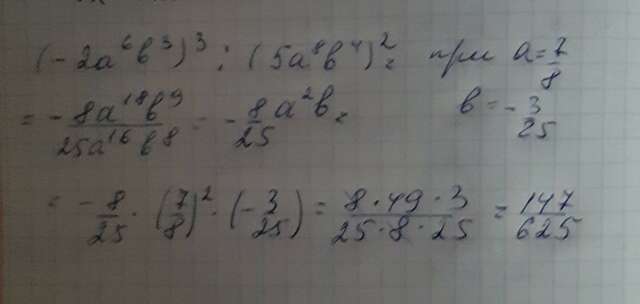 (-2a⁶b³)³ : (5a⁸b⁴)² = при a = 7/8
= -8a¹⁸b⁹/25a¹⁶b⁸ = -8/25 a²b = b = -3/25
= -8/25 · (7/8)² · (-3/25) = 8·49·3/25·8·25 = 147/625